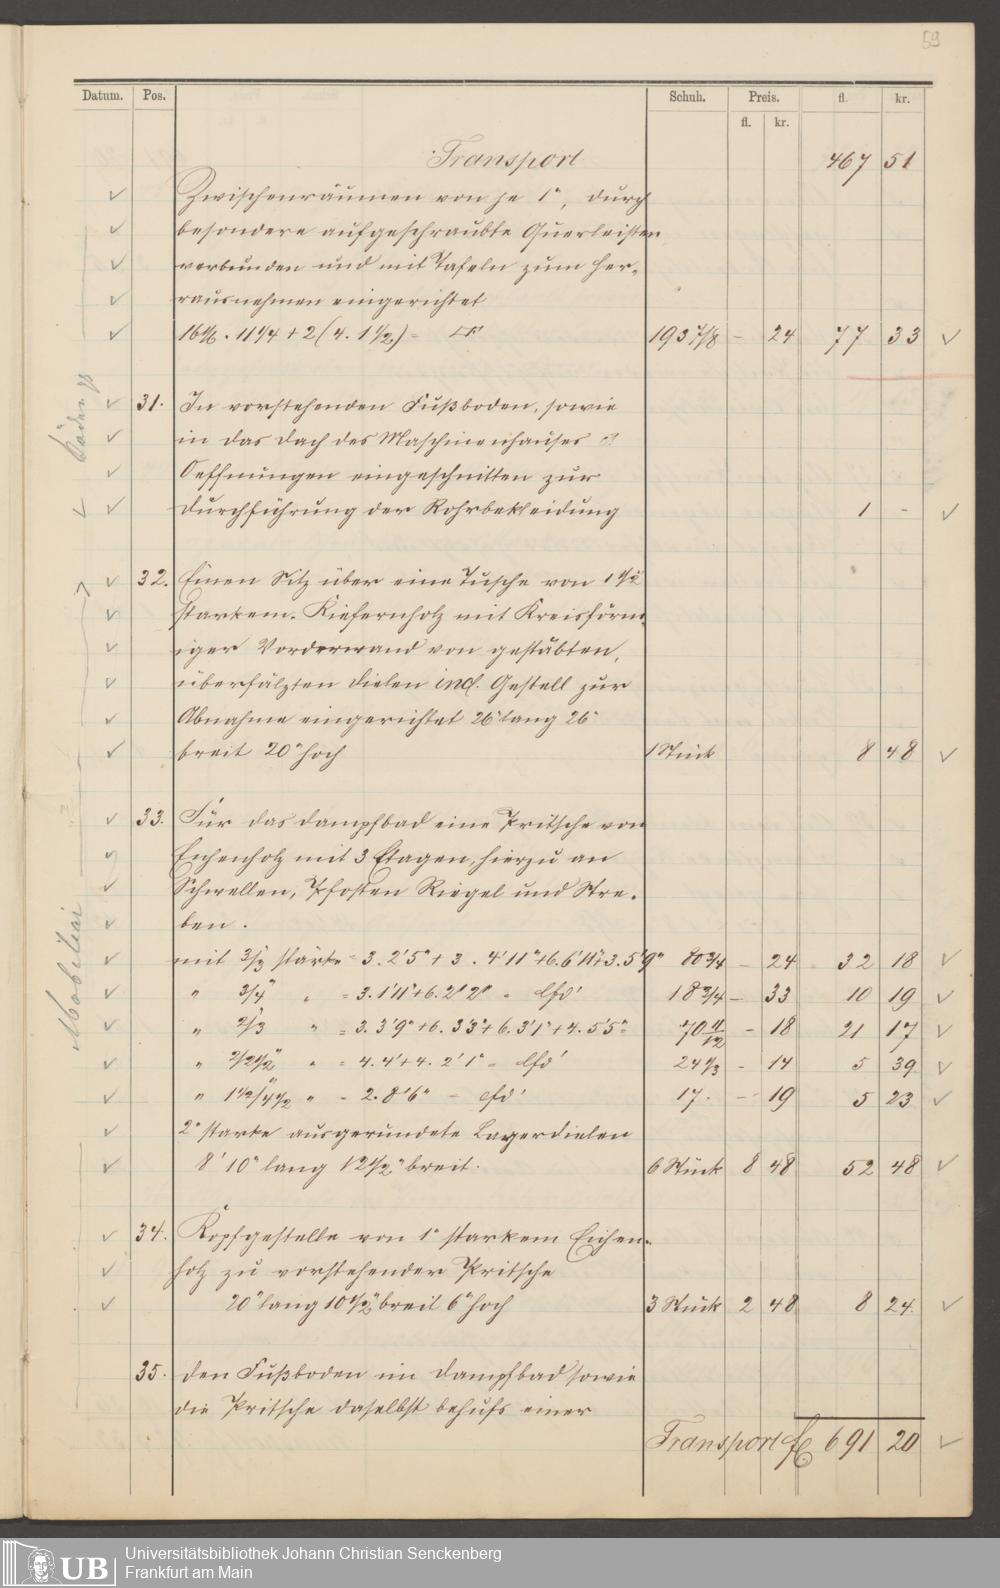 59
Datum. Pos. Schuh. Preis. fl. kr.
fl. kr.
Transport 467 51
Zwischenräumen von je 1", durch
besondere aufgeschraubte Querleisten
verbunden und mit Tafeln zum Her-
rausnehmen eingerichtet
16 1/6 . 11 1/4 + 2 (4 . 1 1/2) = 193 7/8 - 24 77 33
31. In vorstehenden Fußboden, sowie
in das Dach des Maschinenhauses
Oeffnungen eingeschnitten zur
Durchführung der Rohrbekleidung 1 -
32. Einen Sitz über eine Dusche von 1 1/2"
starkem Kiefernholz mit Kreisförm-
iger Vorderwand von gestäbten,
überfälzten Dielen incl. Gestell zur
Abnahme eingerichtet 26" lang 26"
breit 20" hoch 1 Stück 8 48
33. Für das Dampfbad eine Pritsche von
Eichenholz mit 3 Etagen, hierzu an
Schwellen, Pfosten Riegel und Stre-
ben.
mit 3/3" stärke = 3. 2'5" + 3. 4'11" + 6. 6'11" + 3. 5'9" 80 3/4 - 24 32 18
" 3/4" " = 3. 1'11" + 6. 2' 2" = lfd' 18 3/4 - 33 10 19
" 2/3" " = 3. 3'9" + 6. 3'3" + 6. 3'1" + 4. 5'5" = 70 11/12 - 18 21 17
" 2/2 1/2" " = 4. 4' + 4. 2'1" = lfd' 24 1/3 - 14 5 39
" 1 1/2/4 1/2" " = 2. 8'6" = lfd' 17. - 19 5 23
2" starke ausgerundete Lagerdielen
8' 10" lang 12 1/2" breit. 6 Stück 8 48 52 48
34. Kopfgestelle von 1" starkem Eichen-
holz zu vorstehender Pritsche
20" lang 10 1/2" breit 6" hoch 3 Stück 2 48 8 24
35. Den Fußboden im Dampfbad sowie
die Pritsche daselbst behufs einer
Transport fl. 691 20
Mobiliar
UB Universitätsbibliothek Johann Christian Senckenberg
Frankfurt am Main